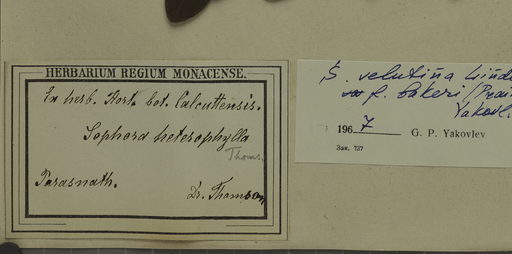 HERBARIUM REGIUM MONACENSE.
Ex herb. Hort. bot. Calcuttensis.
Sophora heterophylla
Thoms.
Parasnath.
Dr. Thomson
S. velutina Lindl
f. bakeri (Prain
Yakovl.
1967 G. P. Yakovlev
Зак. 737